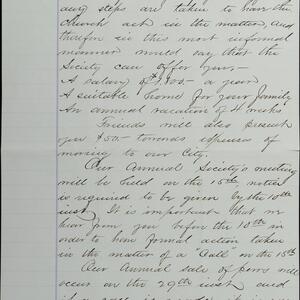 any steps are taken to have the
Church act in the matter, and
therefor in this most informal
manner would say that the
Society can offer you,-
A salary of $ 800- a year
A suitable home for your family
An annual vacation of 4 weeks
Friends will also present
you $50- towards expenses of
moving to our City.
Our Annual Society's meeting
will be held on the 15th notice
is required to be given by the 10th
inst. It is important that we
hear from you before the 10th in
order to have formal action taken
in the matter of a "Call" on the 15th
Our Annual sale of pews will
occur on the 29th inst and